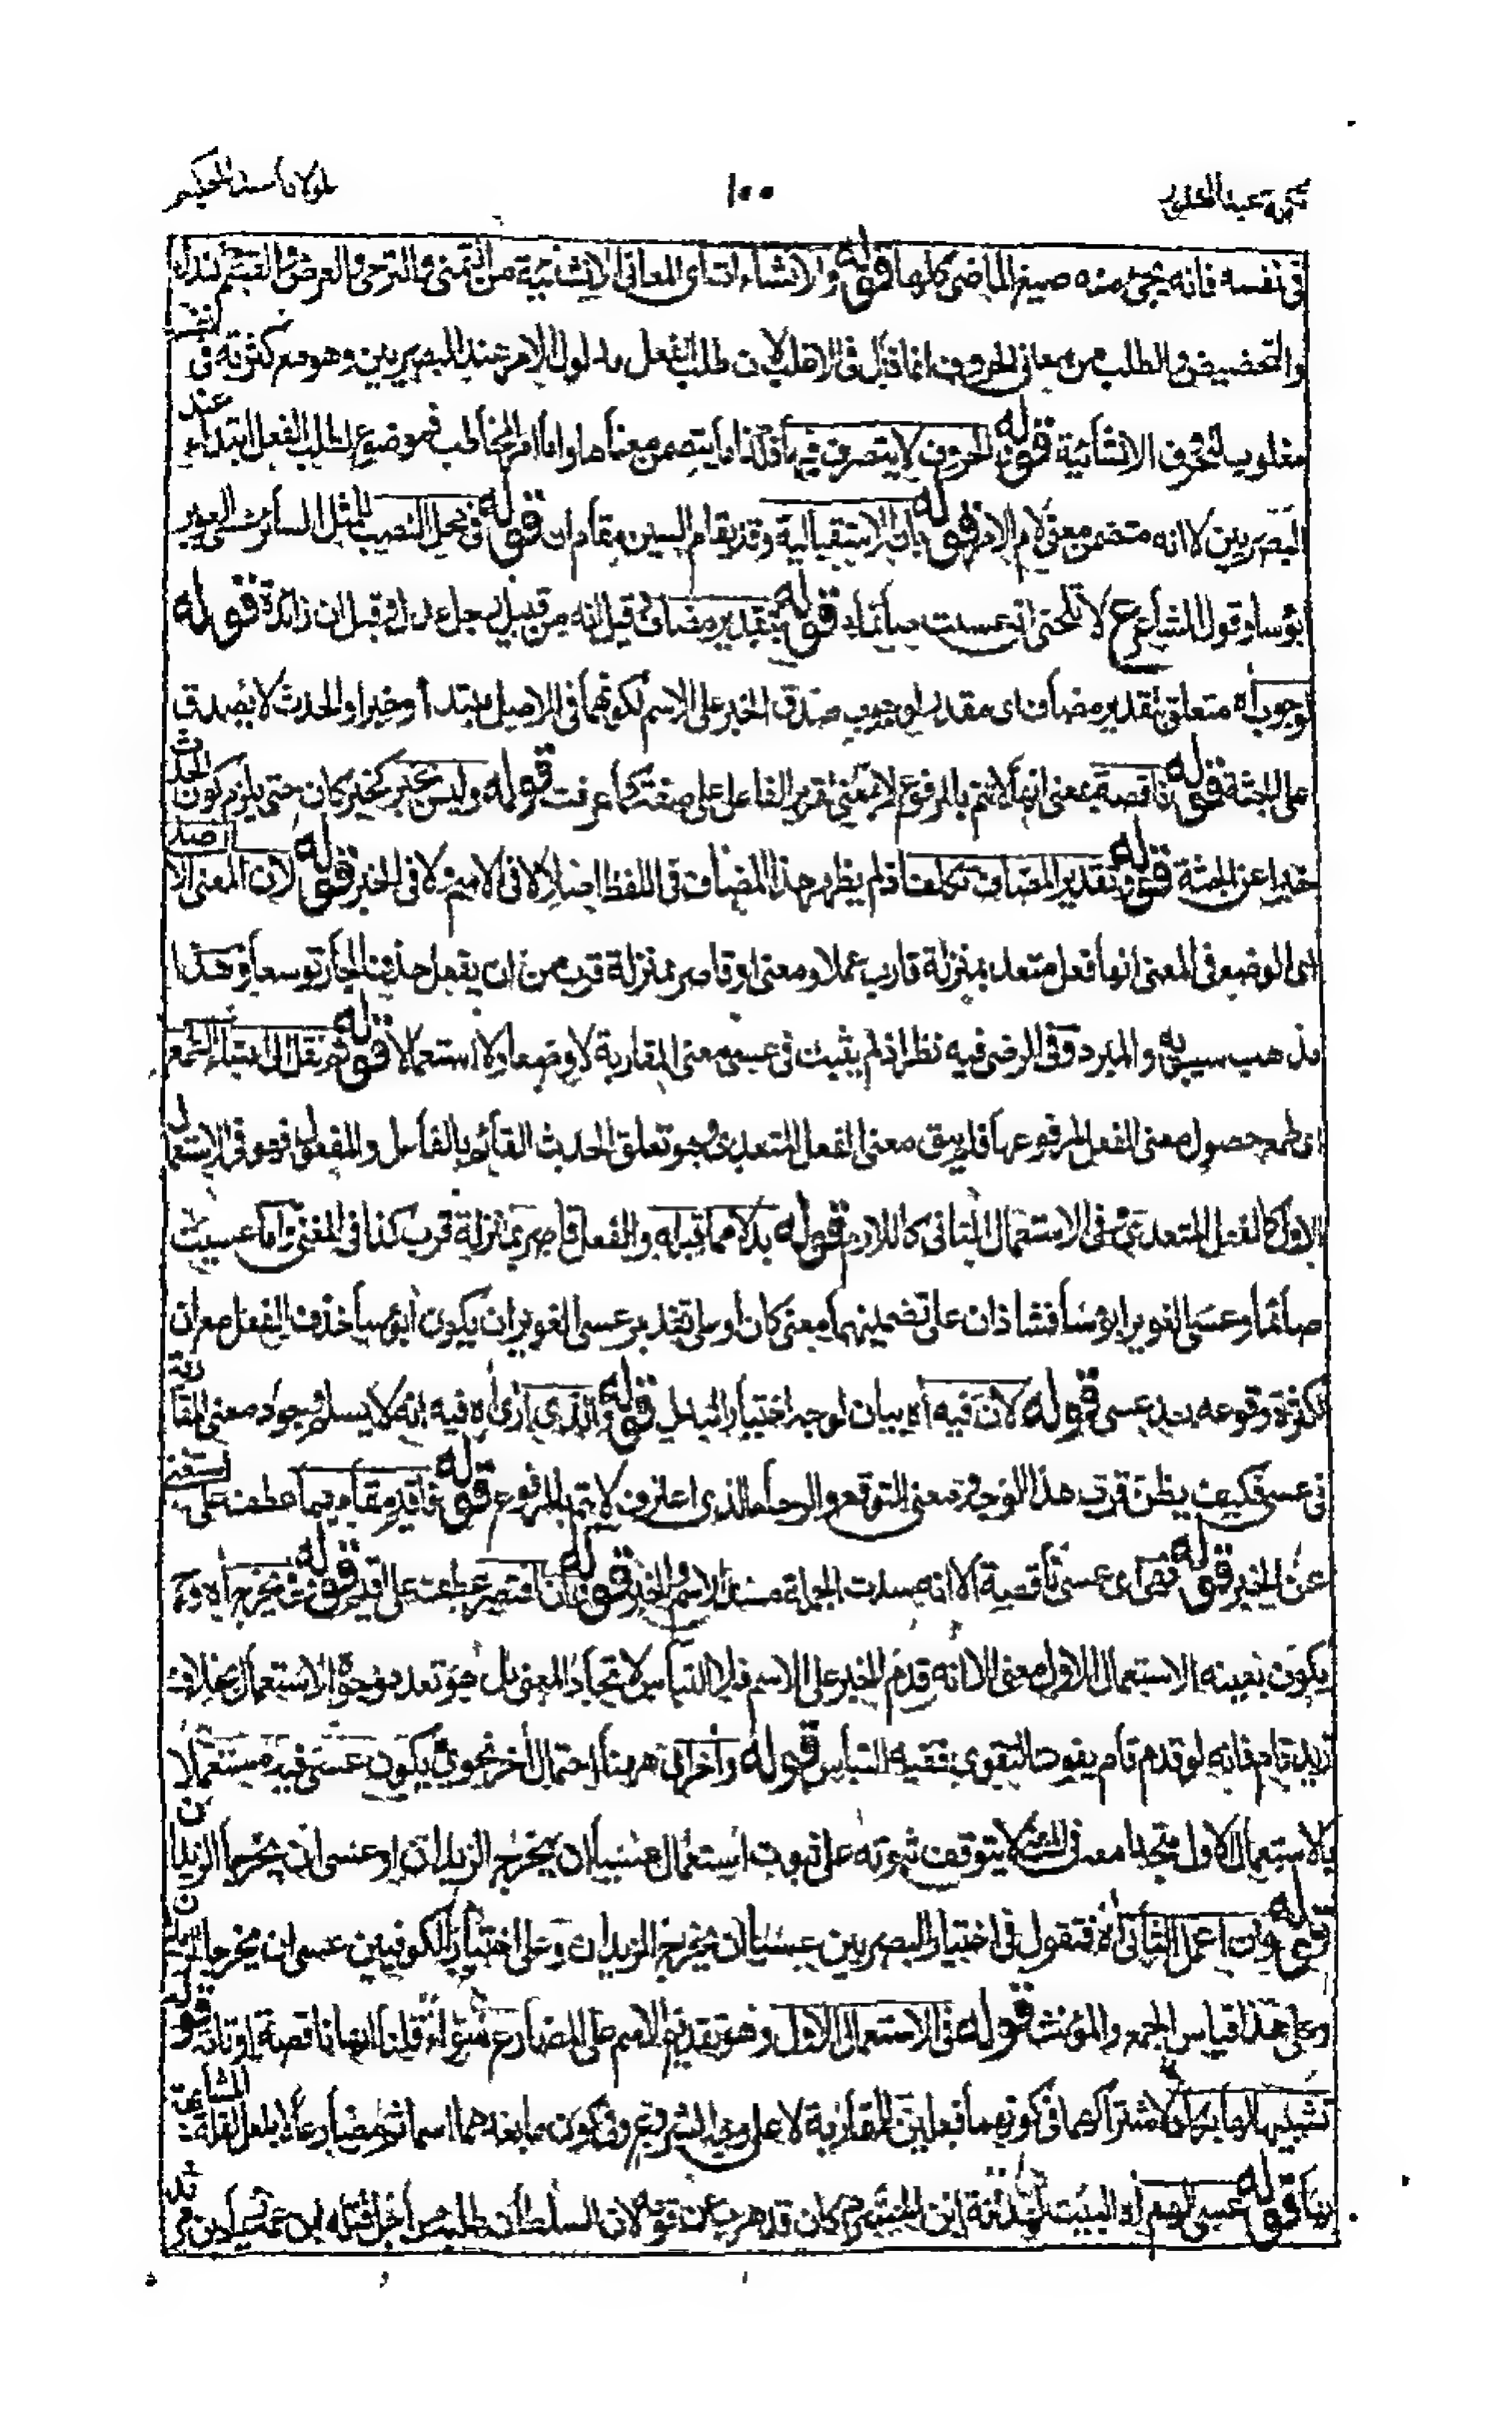 تكملة عبد الغفور
١٠٠
لمولانا عبد الحكيم
فى نفسه فانه يجئ منه صيغ الماضى كلها قوله والانشاءات اى المعانى الانشائية من التمنى والترجى والعرض والقسم والنداء
والتحضيض والطلب من معانى الحروف انما قبل فى الاغلب لان طلب الفعل مدلول اللام عند البصريين وهو مع كثرته فى نفسه
مغلوب لحروف الانشائية قوله والحروف لا يتصرف فيها فكذا ما يتضمن معناها واما امر المخاطب فموضوع لطلب الفعل ابتداء عند
البصريين لا انه متضمن معنى لام الامر قوله بان الاستقبالية وقد يقام السين مقام ان قوله فى محل النصب للمثل السائر عسى الغوير
ابؤسا وقول الشاعر ع لا تلحنى انى عسيت صائما قوله بتقدير مضاف قيل انه من قبيل رجل عدل وقيل ان زائدة قوله
لوجوب اه متعلق بتقدير مضاف اى مقدر لوجوب صدق الخبر على الاسم لكونهما فى الاصل مبتدأ وخبرا والحدث لا يصدق
على الجثة قوله ناقصة بمعنى انها لا تتم بالمرفوع لا بمعنى تقرير الفاعل على صفة كما عرفت قوله وليس بخبر كخبر كان حتى يلزم كون الحدث
خبرا عن الجثة قوله وتقدير المضاف تكلف اذ لم يظهر هذا المضاف فى اللفظ اصلا لا فى الاسم ولا فى الخبر قوله لان المعنى الاصلى
اى الوضعى فى المعنى انها فعل متعد بمنزلة قارب عملا ومعنى او قاصر بمنزلة قرب من ان يفعل حذف الجار توسعا وهذا
مذهب سيبويه والمبرد وفى الرضى فيه نظر اذ لم يثبت فى عسى معنى المقاربة لا وضعا ولا استعمالا قوله ثم نقل الى انشاء الطمع
اى طمع حصول معنى الفعل لمرفوعها فلم يبق معنى الفعل المتعدى وهو تعلق الحدث القائم بالفاعل والمفعول فهو فى الاستعمال
الاول كالفعل المتعدى وفى الاستعمال الثانى كاللازم قوله بدلا مما قبله والفعل قاصر بمنزلة قرب كذا فى المغنى واما عسيت
صائما وعسى الغوير ابؤسا فشاذان على تضمينهما معنى كان او على تقدير عسى الغوير ان يكون ابؤسا حذف الفعل مع ان
لكثرة وقوعه بعد عسى قوله لان فيه اه بيان لوجه اختيار البدل قوله والذى ارى اه فيه انه لا يسلم وجود معنى المقاربة
فى عسى فكيف يظن قرب هذا الوجه معنى التوقع والرجاء الذى اعترف لا يتم بالمرفوع قوله فاقيم مقام فيما عطف على استغنى
عن الخبر قوله فهى اى عسى ناقصة الا انه سدت الجملة مسد الاسم والخبر قوله وان اقتصر عطف على اقيم قوله من يخرج اه
يكون بعينه الاستعمال الاول معنى الا انه قدم الخبر على الاسم فلا التباس لاتحاد المعنى بل هو تعدد وجوه الاستعمال بخلاف
زيد قام فانه لو قدم قام يفوت التقوى ففيه التباس قوله واخران ههنا احتمال اخر نحوى يكون عسى فيه مستعملا
بالاستعمال الاول متحدا معه فى المعنى لا يتوقف ثبوته على ثبوت استعمال عسيا ان يخرج الزيدان او عسى ان يخرجا الزيدان
قوله وان اعمل الثانى اه فتقول فى اختيار البصريين عسيا ان يخرج الزيدان وعلى اختيار الكوفيين عسى ان يخرجا الزيدان
وعلى هذا قياس الجمع والمؤنث قوله على الاستعمال الاول وهو تقديم الاسم على المضارع سواء قلنا انها ناقصة او تامة قوله
تشبيها لها بكاد لاشتراكهما فى كونهما فعلين للمقاربة
قوله عسى الهم اه البيت لهدبة ابن الخشرم كان قد هرب